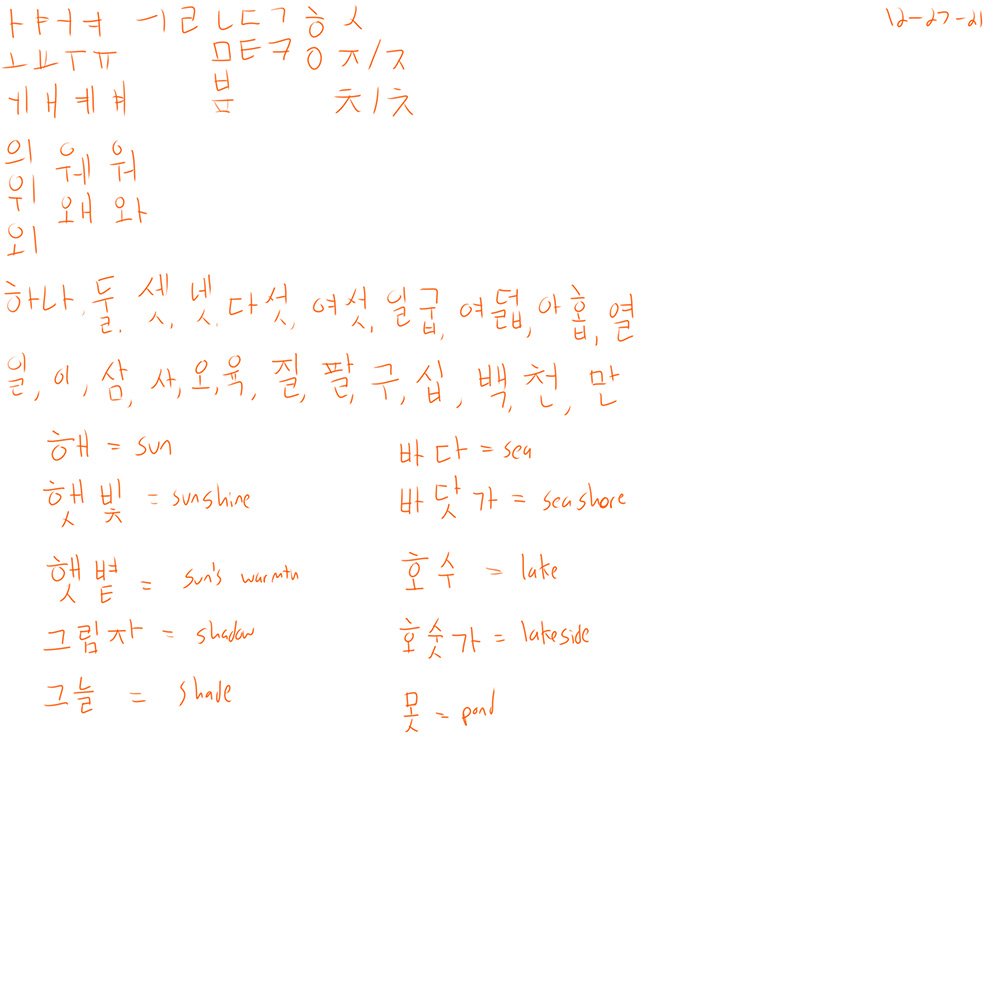 ㅏㅑㅓㅕ ㅡㅣㄹ ㄴㄷㄱㅎㅅ 12-27-21
ㅗㅛㅜㅠ ㅁㅌㅋㅇㅈ/ㅈ
ㅔㅐㅖㅒ ㅂ ㅊ/ㅊ
ㅍ
의 웨 워
위 왜 와
외
하나, 둘, 셋, 넷, 다섯, 여섯, 일굽, 여덟, 아홉, 열
일, 이, 삼, 사, 오, 육, 질, 팔, 구, 십, 백, 천, 만
해 = sun 바다 = sea
햇빛 = sunshine 바닷가 = seashore
햇볕 = sun's warmth 호수 = lake
그림자 = shadow 호숫가 = lakeside
그늘 = shade 못 = pond